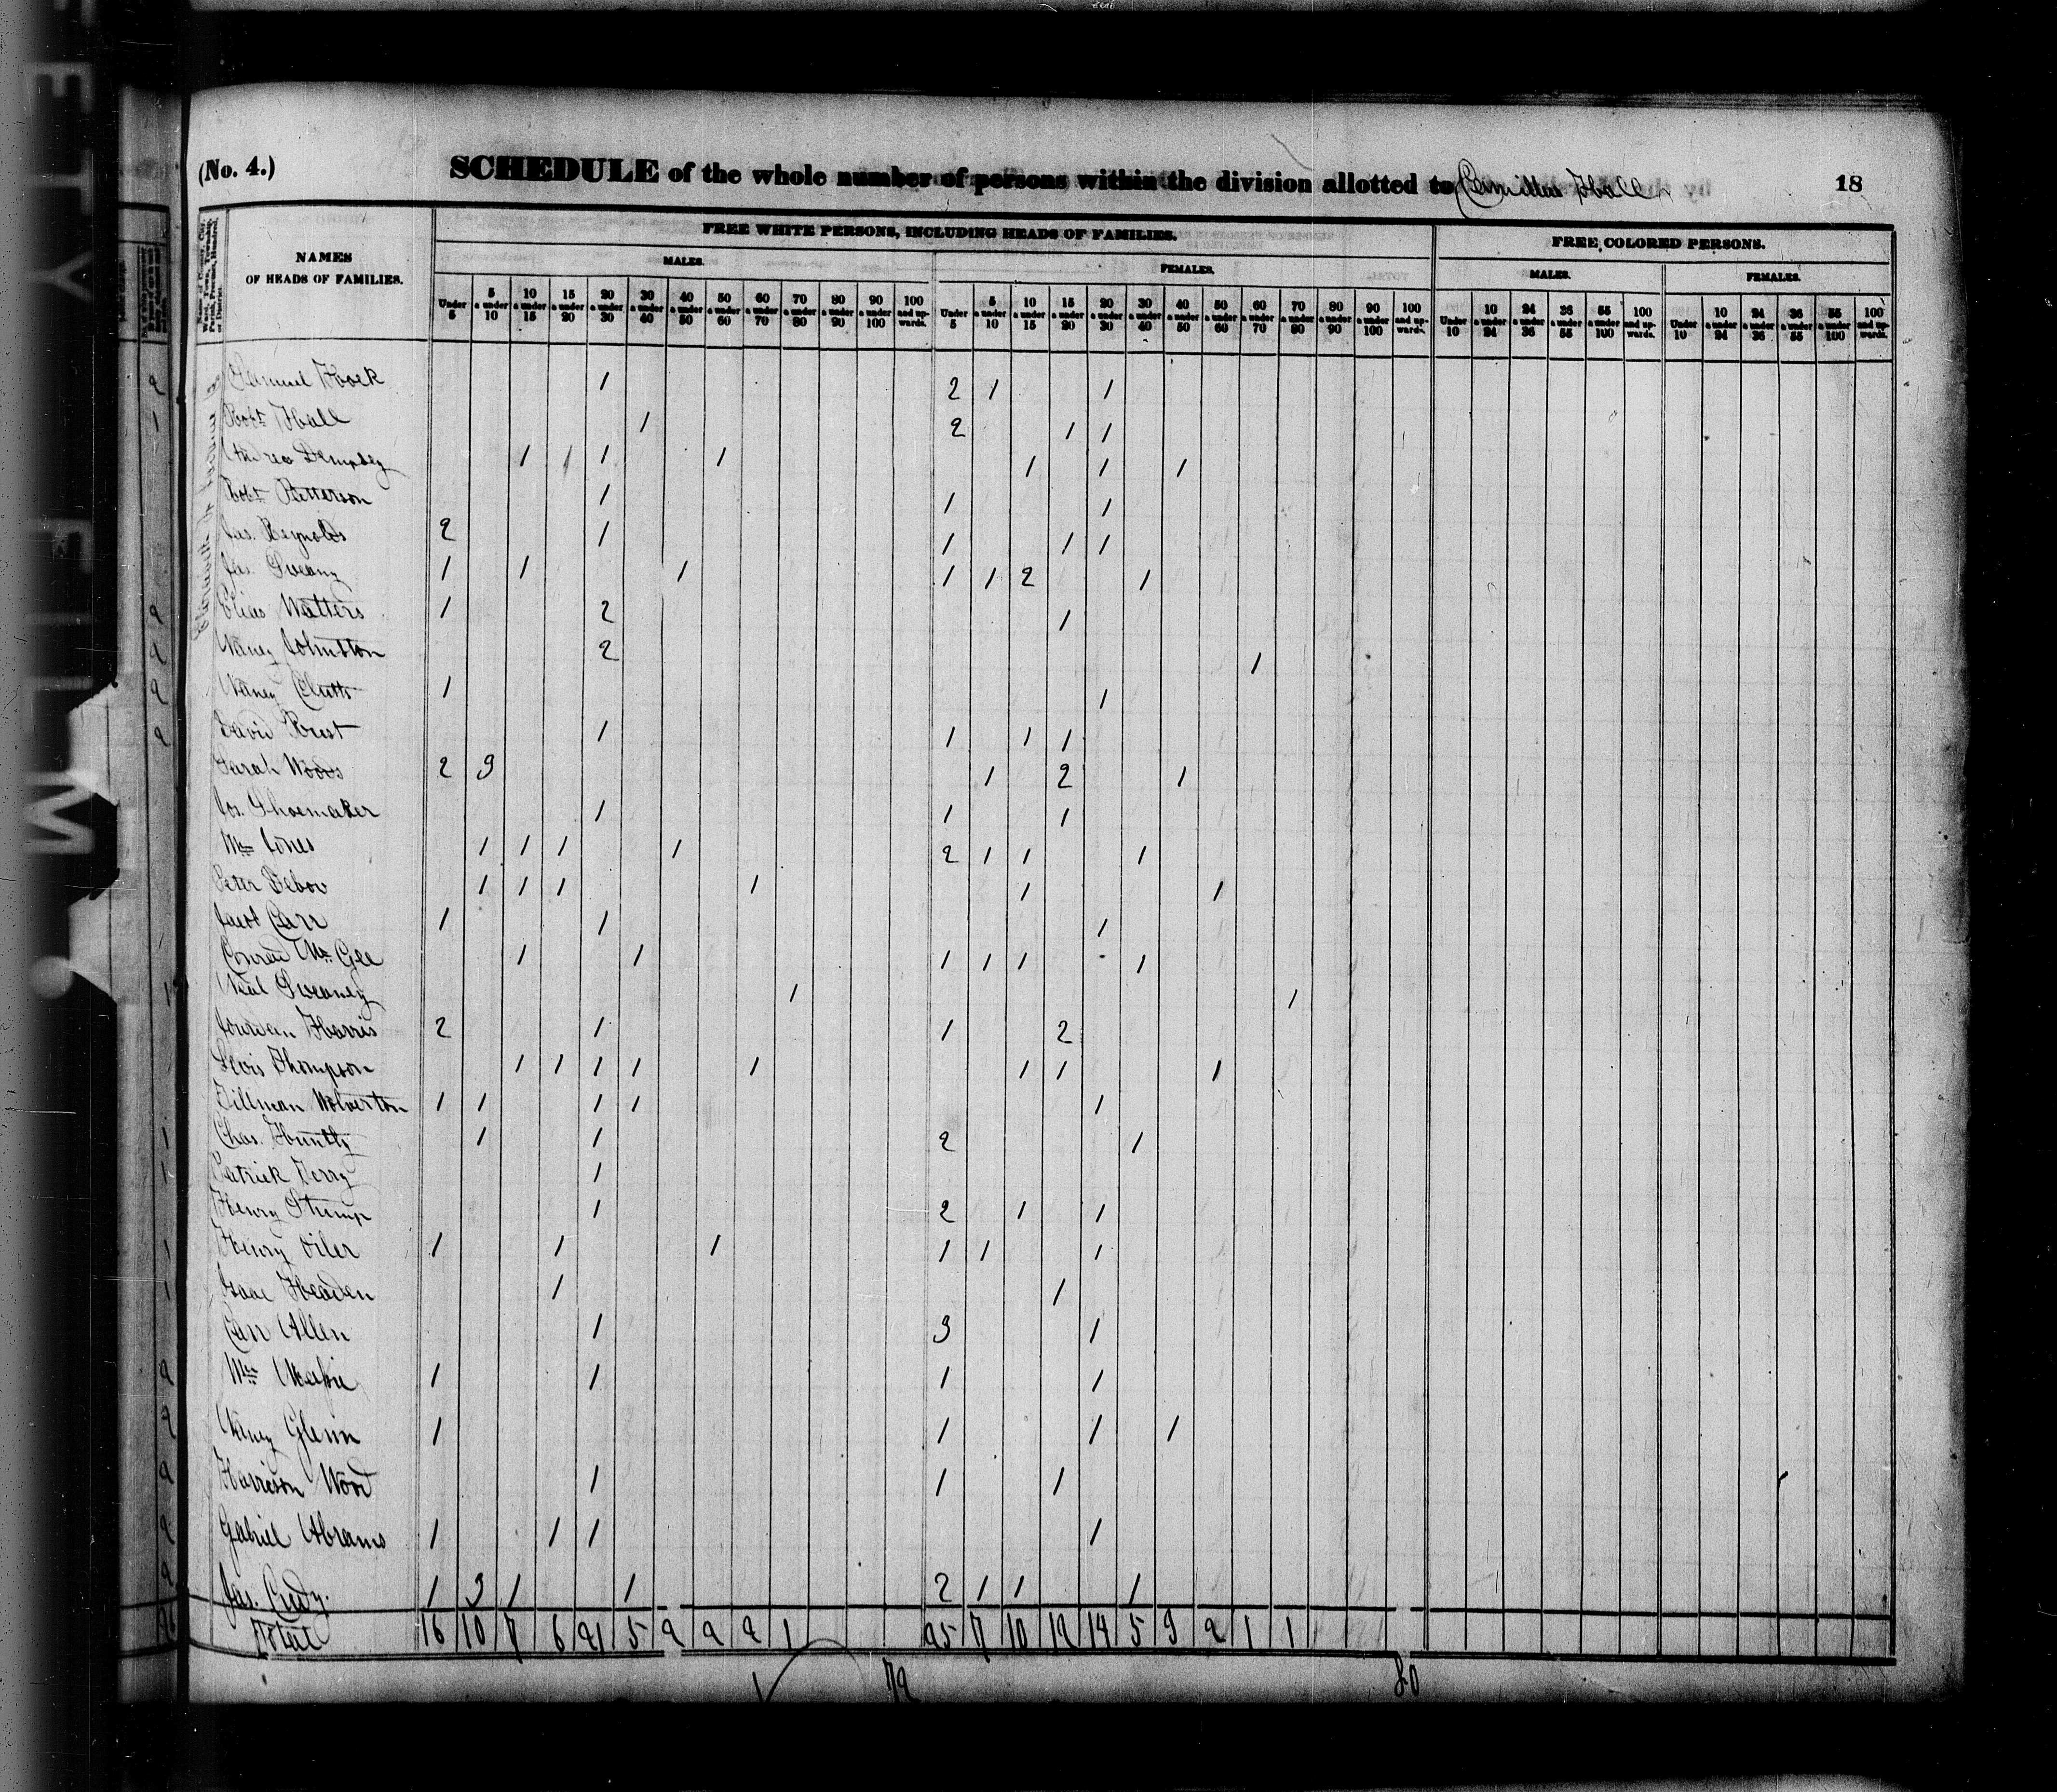 (No. 4.) SCHEDULE of the whole number of persons within the division allotted to Hall 18
FREE WHITE PERSONS, INCLUDING HEADS OF FAMILIES. FREE COLORED PERSONS.
NAMES OF HEADS OF FAMILIES.
MALES. FEMALES. MALES. FEMALES.
Under 5 5 a under 10 10 a under 15 15 a under 20 20 a under 30 30 a under 40 40 a under 50 50 a under 60 60 a under 70 70 a under 80 80 a under 90 90 a under 100 100 and upwards. Under 5 5 a under 10 10 a under 15 15 a under 20 20 a under 30 30 a under 40 40 a under 50 50 a under 60 60 a under 70 70 a under 80 80 a under 90 90 a under 100 100 and upwards. Under 10 10 a under 24 24 a under 36 36 a under 55 55 a under 100 100 and upwards. Under 10 10 a under 24 24 a under 36 36 a under 55 55 a under 100 100 and upwards.
Samuel Hock 1 2 1 1
Robt Hall 1 2 1 1
Andrew Dempsey 1 1 1 1 1 1 1
Robt Patterson 1 1 1
Jas. Reynolds 2 1 1 1 1
Jas. Sweany 1 1 1 1 1 2 1
Elias Watters 1 2 1
Nancy Johnston 2 1
Nancy Clutts 1 1
David Brest 1 1 1 1
Sarah Woods 2 3 1 2 1
Jos. Shoemaker 1 1 1
Wm Jones 1 1 1 1 2 1 1 1
Peter Debow 1 1 1 1 1 1
Jacob Carr 1 1 1
Conrad McGee 1 1 1 1 1 1
Neal Sweaney 1 1
Jourdan Harris 2 1 1 2
Levis Thompson 1 1 1 1 1 1 1 1
Tillman Wolverton 1 1 1 1 1
Chas. Huntly 1 1 2 1
Patrick Terry 1
Henry Stump 1 2 1 1
Henry Oiler 1 1 1 1 1 1
Isaac Headen 1 1
Carr Allen 1 3 1
Wm 1 1 1 1
Nancy Glenn 1 1 1 1
Harrison Wood 1 1 1
Gabriel Abrams 1 1 1 1
Jas. Cred 1 3 1 1 2 1 1 1
Total 16 10 7 6 21 5 2 2 2 1 25 7 10 12 14 5 3 2 1 1
72 80